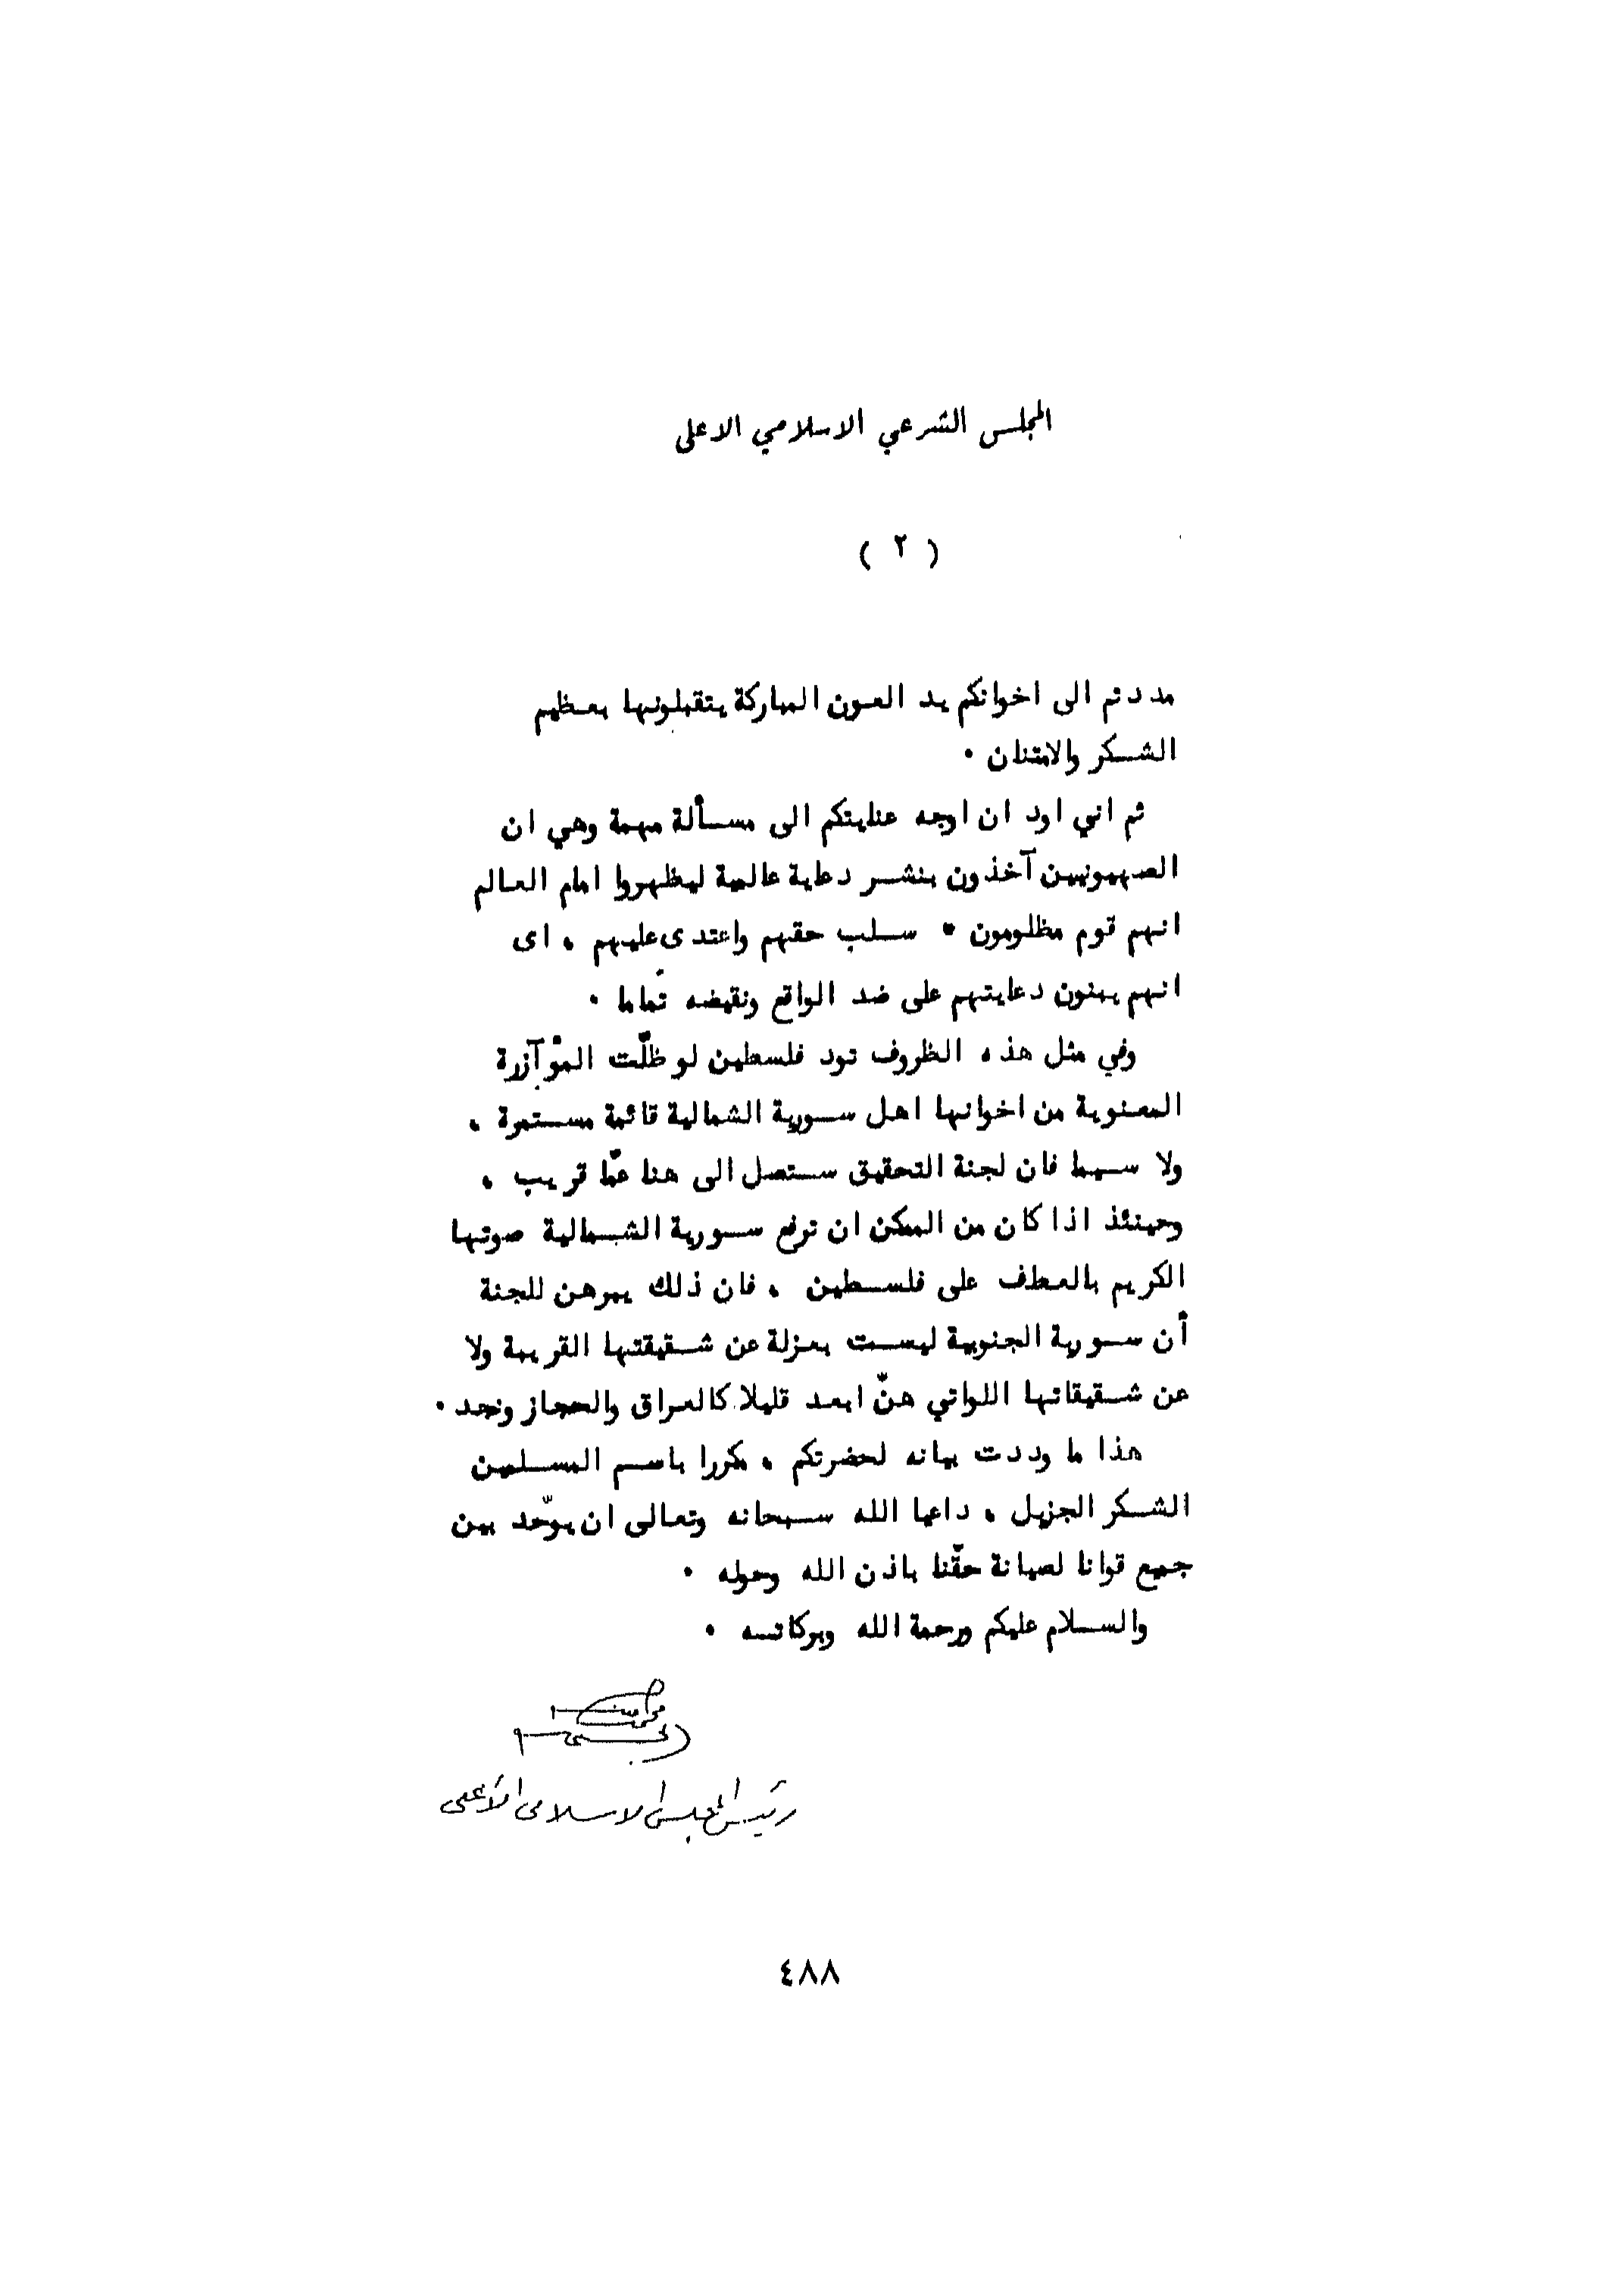 المجلس الشرعي الاسلامي الاعلى
( ٢ )
مددتم الى اخوانكم يد العون المباركة يتقبلونها بعظيم
الشكر والامتنان ٠
ثم اني اود ان اوجه عنايتكم الى مسألة مهمة وهي ان
الصهيونيين آخذون بنشر دعاية عالمية ليظهروا امام العالم
انهم قوم مظلومون ٠ سلب حقهم واعتدى عليهم ، اى
انهم يبنون دعايتهم على ضد الواقع ونقيضه تماما ٠
وفي مثل هذه الظروف تود فلسطين لو ظلّت المؤآزرة
المعنوية من اخوانها اهل سورية الشمالية قائمة مستمرة ،
ولا سيما فان لجنة التحقيق ستصل الى هنا عمّا قريب ،
وحينئذ اذا كان من الممكن ان ترفع سورية الشمالية صوتها
الكريم بالعطف على فلسطين ، فان ذلك يبرهن للجنة
أن سورية الجنوبية ليست بعزلة عن شقيقتها القريبة ولا
عن شقيقاتها اللواتي هنّ ابعد قليلا كالعراق والحجاز ونجد ٠
هذا ما وددت بيانه لحضرتكم ، مكررا باسم المسلمين
الشكر الجزيل ، داعيا الله سبحانه وتعالى ان يوّحد بين
جميع قوانا لصيانة حقّنا باذن الله وحوله ٠
والسلام عليكم ورحمة الله وبركاتسه ٠
محمد امين الحسيني
رئيس المجلس الاسلامي الأعلى
٤٨٨